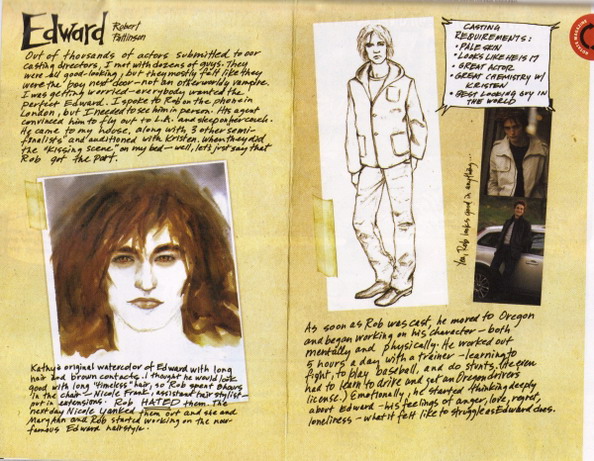 Edward Robert
Pattinson
Out of thousands of actors submitted to our
casting directors, I met with dozens of guys. They
were all good-looking, but they mostly felt like they
were the boy next door - not an otherworldly vampire.
I was getting worried - everybody wanted the
perfect Edward. I spoke to Rob on the phone in
London, but I needed to see him in person. His agent
convinced him to fly out to L.A. and sleep on her couch.
He came to my house, along with 3 other semi-
finalists and auditioned with Kristen. When they did
the "kissing scene" on my bed - well, let's just say that
Rob got the part.
Kathy's original watercolor of Edward with long
hair and brown contacts. I thought he would look
good with long "timeless" hair, so Rob spent 8 hours
in the chair - Nicole Frank, assistant hair stylist -
put in extensions. Rob HATED them. The
next day Nicole yanked them out and she and
Mary Ann and Rob started working on the now-
famous Edward hairstyle.
CASTING
REQUIREMENTS:
• PALE SKIN
• LOOKS LIKE HE IS 17
• GREAT ACTOR
• GREAT CHEMISTRY W/
KRISTEN
• BEST LOOKING GUY IN
THE WORLD
Yes, Rob looks good in anything...
As soon as Rob was cast, he moved to Oregon
and began working on his character - both
mentally and physically. He worked out
5 hours a day with a trainer - learning to
fight, to play baseball, and do stunts. (He even
had to learn to drive and get an Oregon drivers
license.) Emotionally, he started thinking deeply
about Edward - his feelings of anger, love, regret,
loneliness - what it felt like to struggle as Edward does.